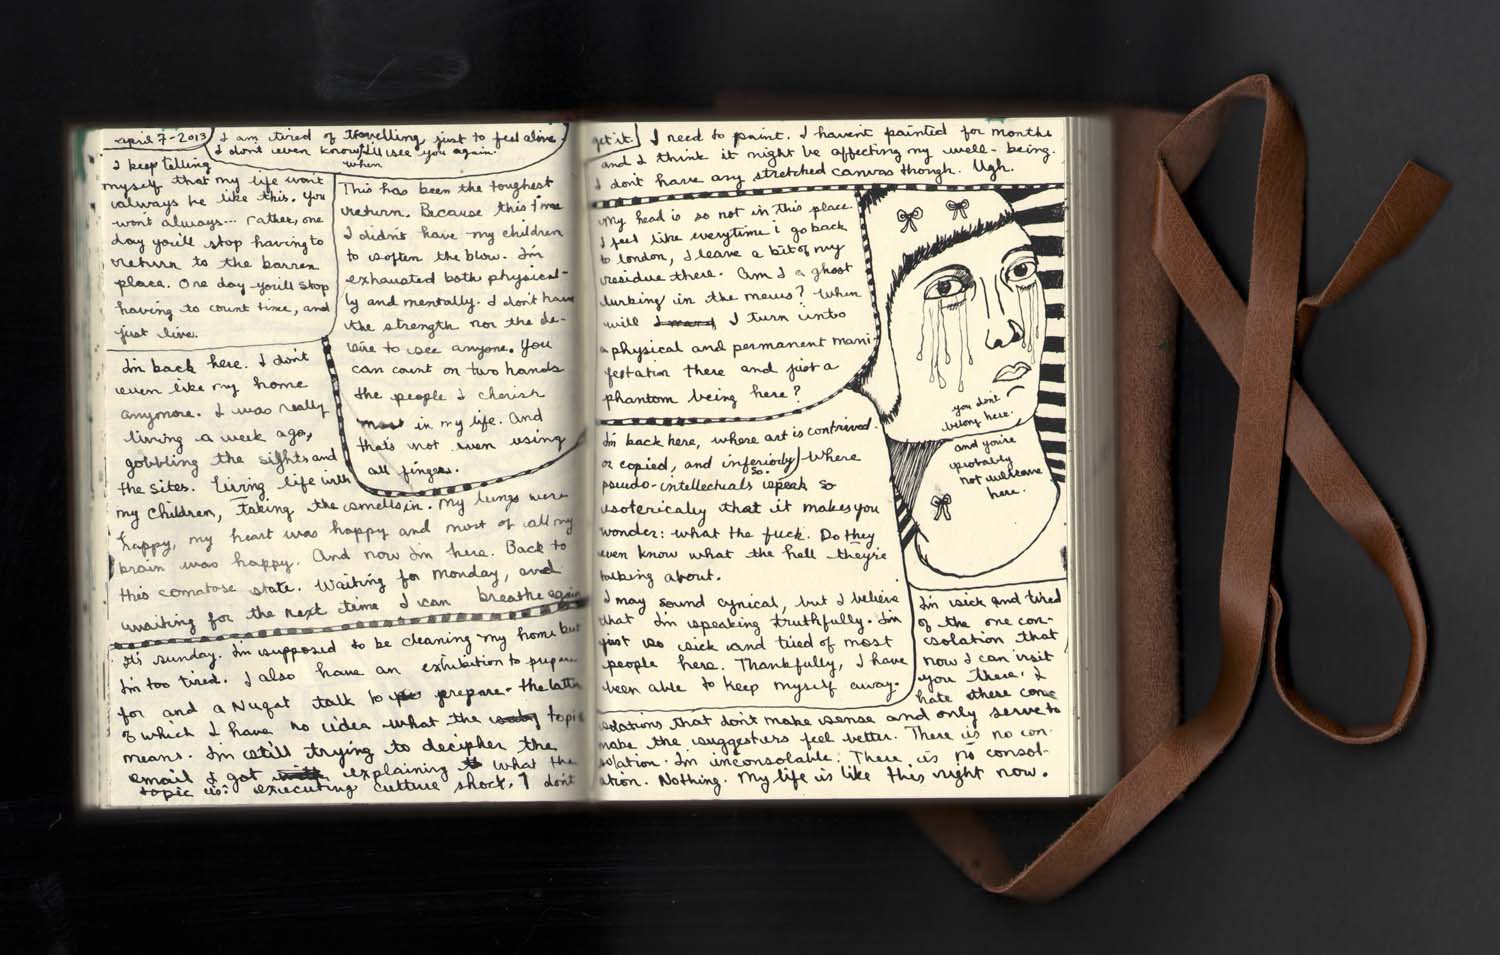 april 7-2013
I am tired of travelling just to feel alive.
I don't even know when I'll see you again.
I keep telling
myself that my life wont
always be like this. You
won't always... rather, one
day you'll stop having to
return to the barren
place. One day you'll stop
having to count time, and
just live.
This has been the toughest
return. Because this time
I didn't have my children
to soften the blow. I'm
exhausted both physical-
ly and mentally. I don't have
the strength nor the de-
sire to see anyone. You
can count on two hands
the people I cherish
most in my life. And
that's not even using
all fingers.
I'm back here. I don't
even like my home
anymore. I was really
living a week ago,
gobbling the sights and
the sites. Living life with
my children, taking the smells in. My lungs were
happy, my heart was happy and most of all my
brain was happy. And now I'm here. Back to
this comatose state. Waiting for Monday, and
waiting for the next time I can breathe again
It's sunday. I'm supposed to be cleaning my home but
I'm too tired. I also have an exhibition to prepare
for and a Nuqat talk to prepare - the latter
of which I have no idea what the topic
means. I'm still trying to decipher the
email I got explaining what the
topic is: executing culture shock. I don't
get it.
I need to paint. I haven't painted for months
and I think it might be affecting my well-being.
I don't have any stretched canvas though. Ugh.
My head is so not in this place.
I feel like everytime i go back
to london, I leave a bit of my
residue there. Am I a ghost
lurking in the mews? When
will I turn into
a physical and permanent mani-
festation there and just a
phantom being here?
I'm back here, where art is contrived.
or copied, and inferiorly so. Where
pseudo-intellectuals speak so
esoterically that it makes you
wonder: what the fuck. Do they
even know what the hell they're
talking about.
I may sound cynical, but I believe
that I'm speaking truthfully. I'm
just so sick and tired of most
people here. Thankfully, I have
been able to keep myself away.
you don't
belong here.
and you're
probably
not welcome
here.
I'm sick and tired
of the one con-
solation that
now I can visit
you there. I
hate these cons
olations that don't make sense and only serve to
make the suggesters feel better. There is no con-
solation. I'm inconsolable. There is no consol-
ation. Nothing. My life is like this right now.